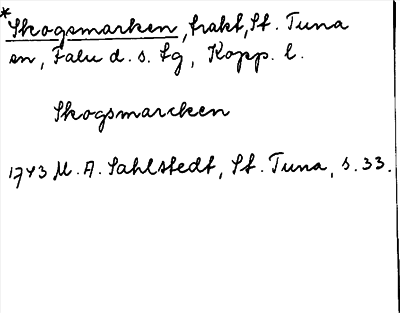 *Skogsmarken, trakt, St. Tuna
sn, Falu d. s. Lg, Kopp. l.
Skogsmarcken
1743 M. A. Sahlstedt, St. Tuna, s. 33.